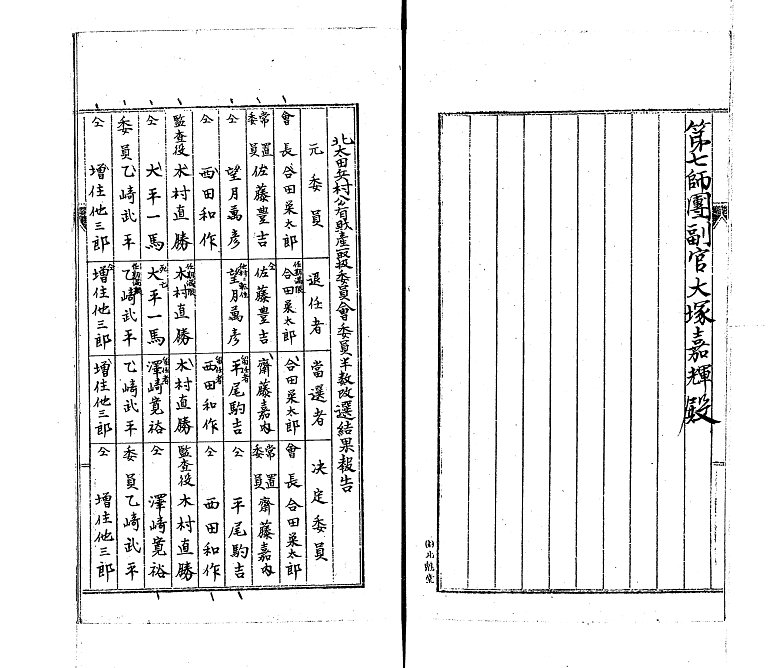 第七師團副官大塚嘉輝殿
北太田兵村公有財産取扱委員會委員半数改選結果報告
元委員 退任者 當選者 决定委員
會長 合田粂太郎 任期満限 合田粂太郎 合田粂太郎 會長 合田粂太郎
常置委員 佐藤豊吉 仝 佐藤豊吉 齋藤嘉内 常置委員 齋藤嘉内
仝 望月萬彦 望月萬彦 留任者 平尾駒吉 仝 平尾駒吉
仝 西田和作 留任者 西田和作 仝 西田和作
監査役 木村直勝 任期満限 木村直勝 木村直勝 監査役 木村直勝
仝 大平一馬 死亡 大平一馬 留任者 澤崎寛裕 仝 澤崎寛裕
委員 乙崎武平 任期満限 乙崎武平 乙崎武平 委員 乙崎武平
仝 増住他三郎 仝 増住他三郎 増住他三郎 仝 増住他三郎